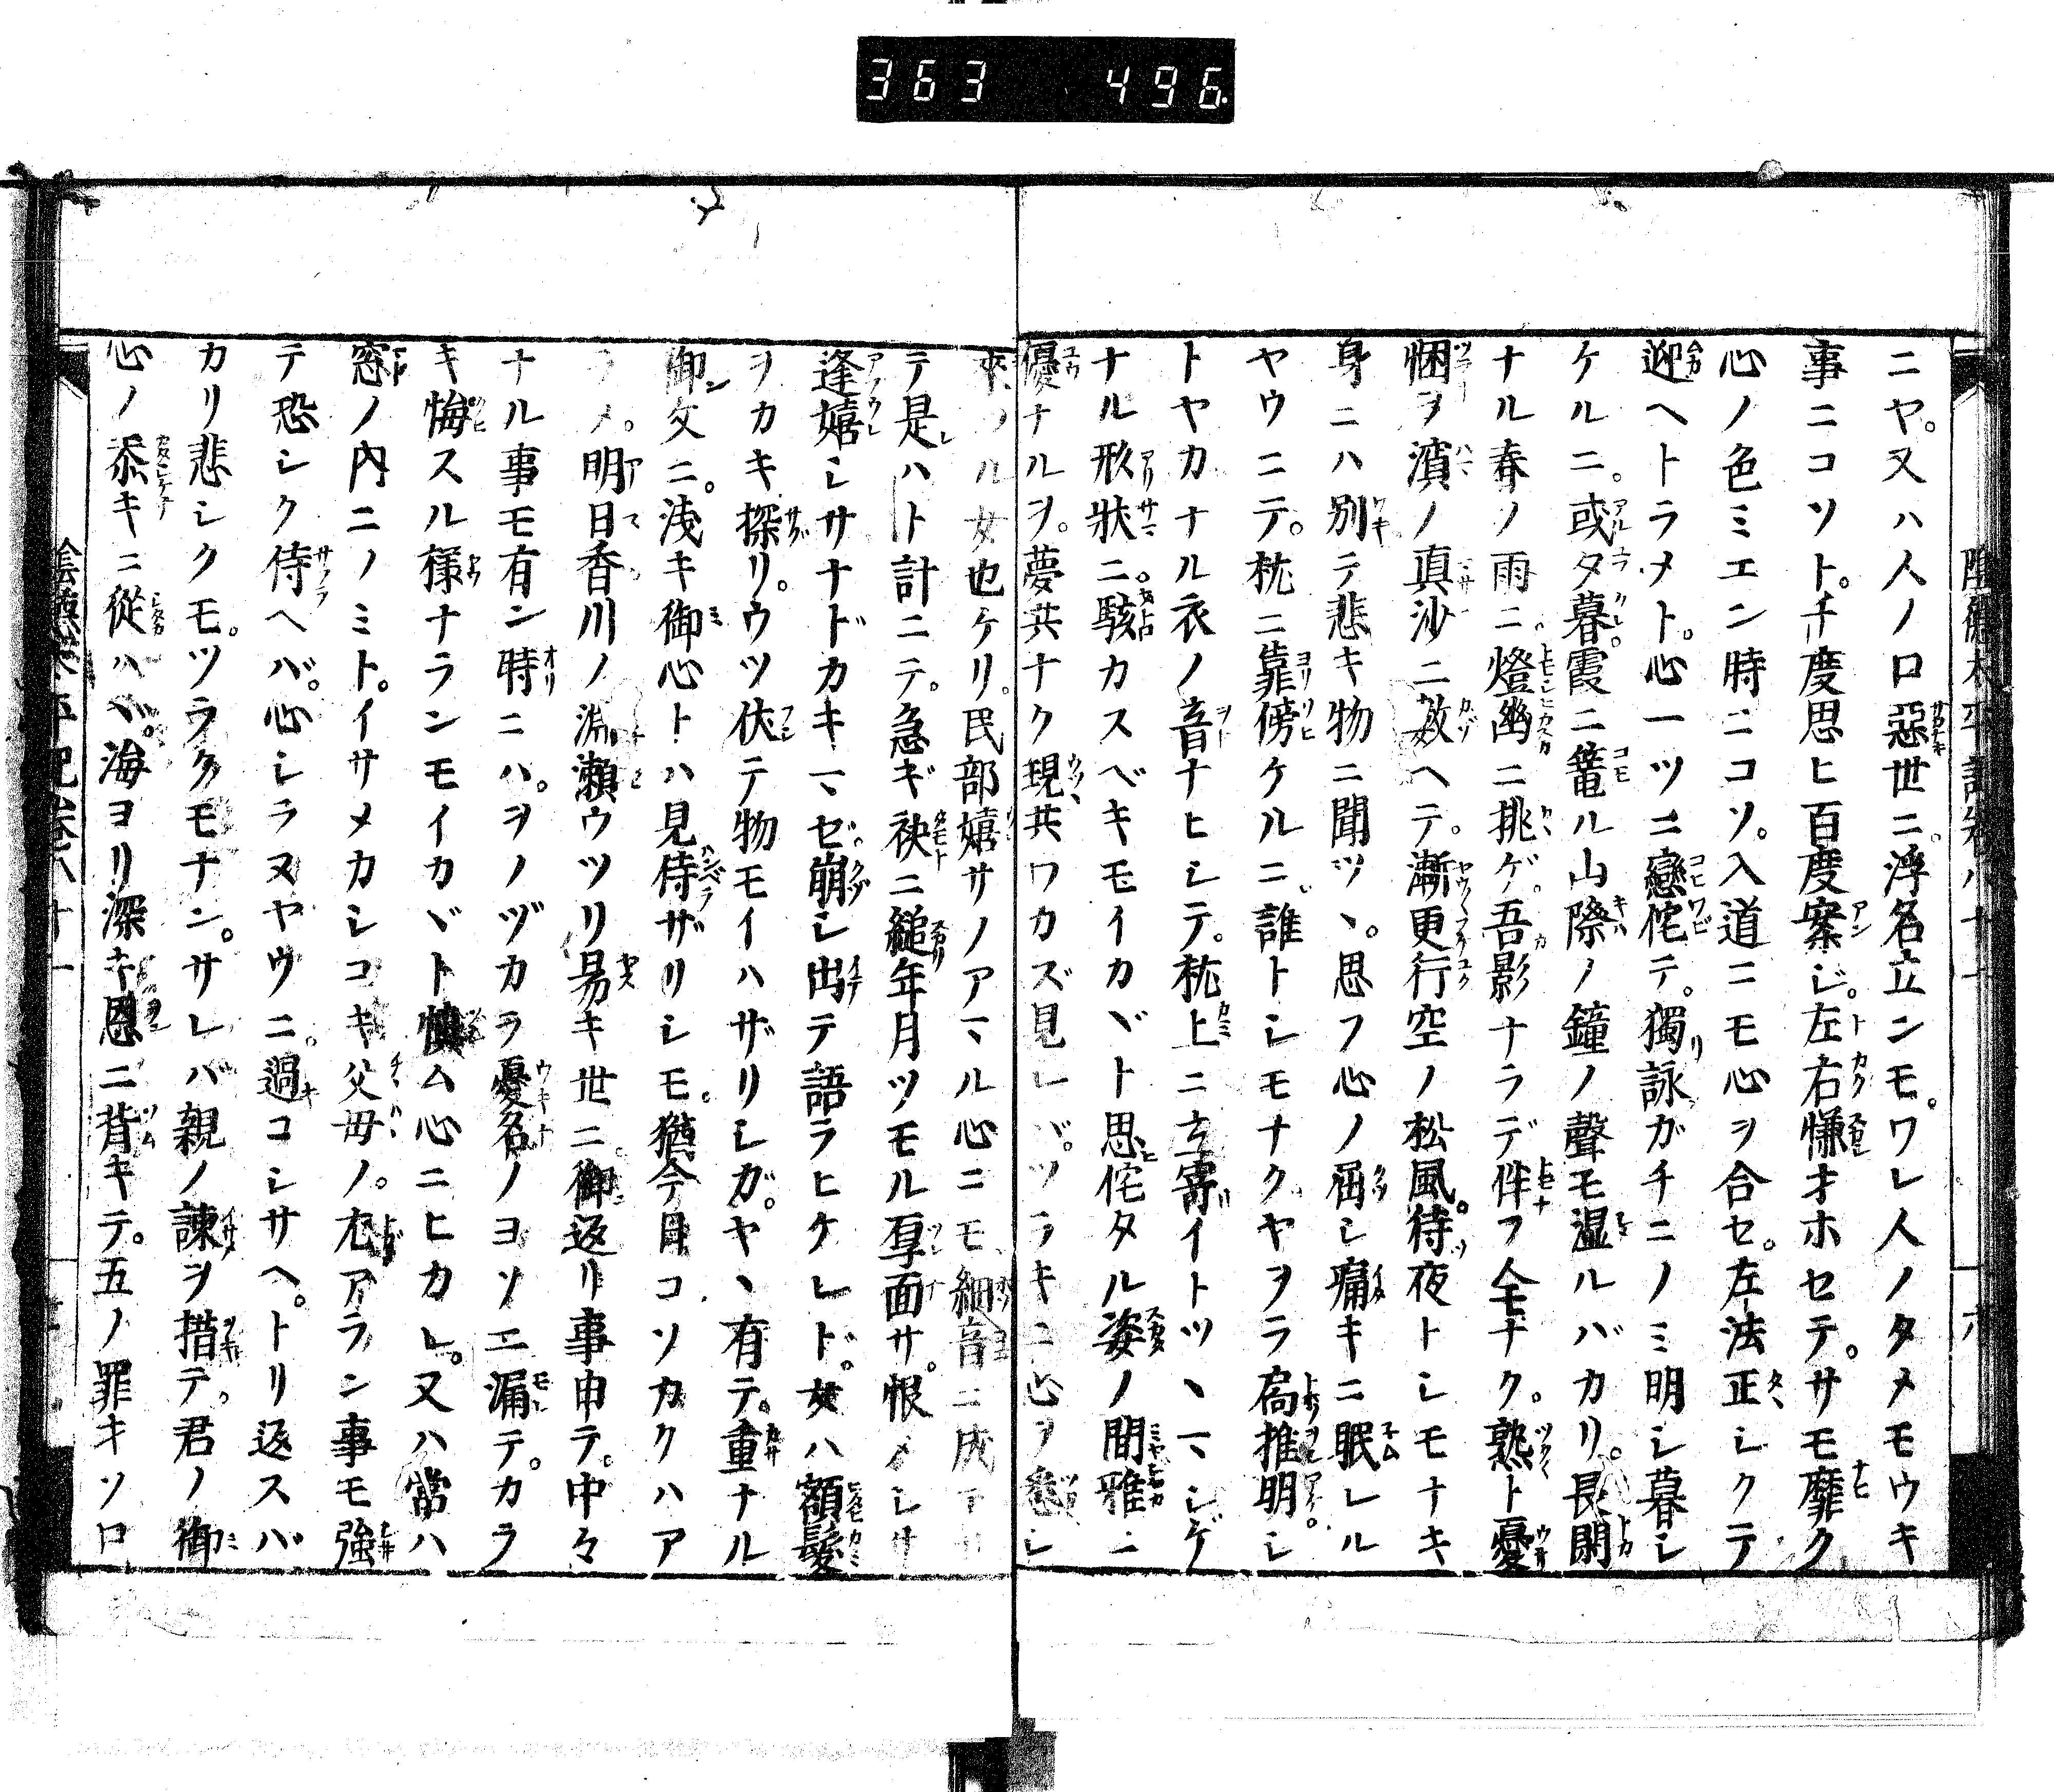 363 496
ニヤ。又ハ人ノ口惡世ニ。浮名立ンモ。ワレ人ノタメモウキ
事ニコソト。千度思ヒ百度案ジ。左右慊オホセテ。サモ靡ク
心ノ色ミエン時ニコソ。入道ニモ心ヲ合セ。左法正シクテ
迎ヘトラメト。心一ツニ戀侘テ。獨詠ガチニノミ明シ暮シ
ケルニ。或夕暮。霞ニ篭ル山際ノ鐘ノ聲モ湿ルバカリ。長閑
ナル春ノ雨ニ。燈幽ニ挑ゲ。吾影ナラデ伴フ人モナク。熟ト憂
悃ヲ濱ノ真沙ニ数ヘテ。漸更行空ノ松風。待夜トシモナキ
身ニハ別テ悲キ物ニ聞ツヽ。思フ心ノ屈シ痛キニ眠レル
ヤウニテ。枕ニ靠傍ケルニ。誰トシモナクヤヲラ扃推明シ
トヤカナル衣ノ音ナヒシテ。枕上ニ立寄イトツヽマシゲ
ナル形狀ニ。駭カスベキモイカヾト思侘タル姿ノ間雅ニ
優ナルヲ。夢共ナク現共ワカズ見レバ。ツラキニ心ヲ悉シ
來ツル女也ケリ。民部嬉サノアマル心ニモ細音ニ成
テ是ハト計ニテ。急ギ袂ニ縋年月ツモル厚面サ。恨メシサ
逢嬉シサナドカキマゼ。崩シ出テ語ラヒケレド。女ハ額髮
ヲカキ探リ。ウツ伏テ物モイハザリシガ。ヤヽ有テ。重ナル
御文ニ。浅キ御心トハ見侍ザリシモ。猶今日コソカクハア
ラメ。明日香川ノ淵瀬ウツリ易キ世ニ。御返リ事申テ。中々
ナル事モ有ン時ニハ。ヲノヅカラ憂名ノヨソエ漏テ。カラ
キ悔スル様ナランモイカヾト慎ム心ニヒカレ。又ハ當ハ
窓ノ内ニノミト。イサメカシコキ父母ノ。尤アラン事モ強
テ恐シク侍ヘバ。心シラヌヤウニ。過コシサヘ。トリ返スバ
カリ悲シクモ。ツラクモナン。サレバ親ノ諫ヲ措テ。君ノ御
心ノ忝キニ從ハバ。海ヨリ深キ恩ニ背キテ。五ノ罪キソロ